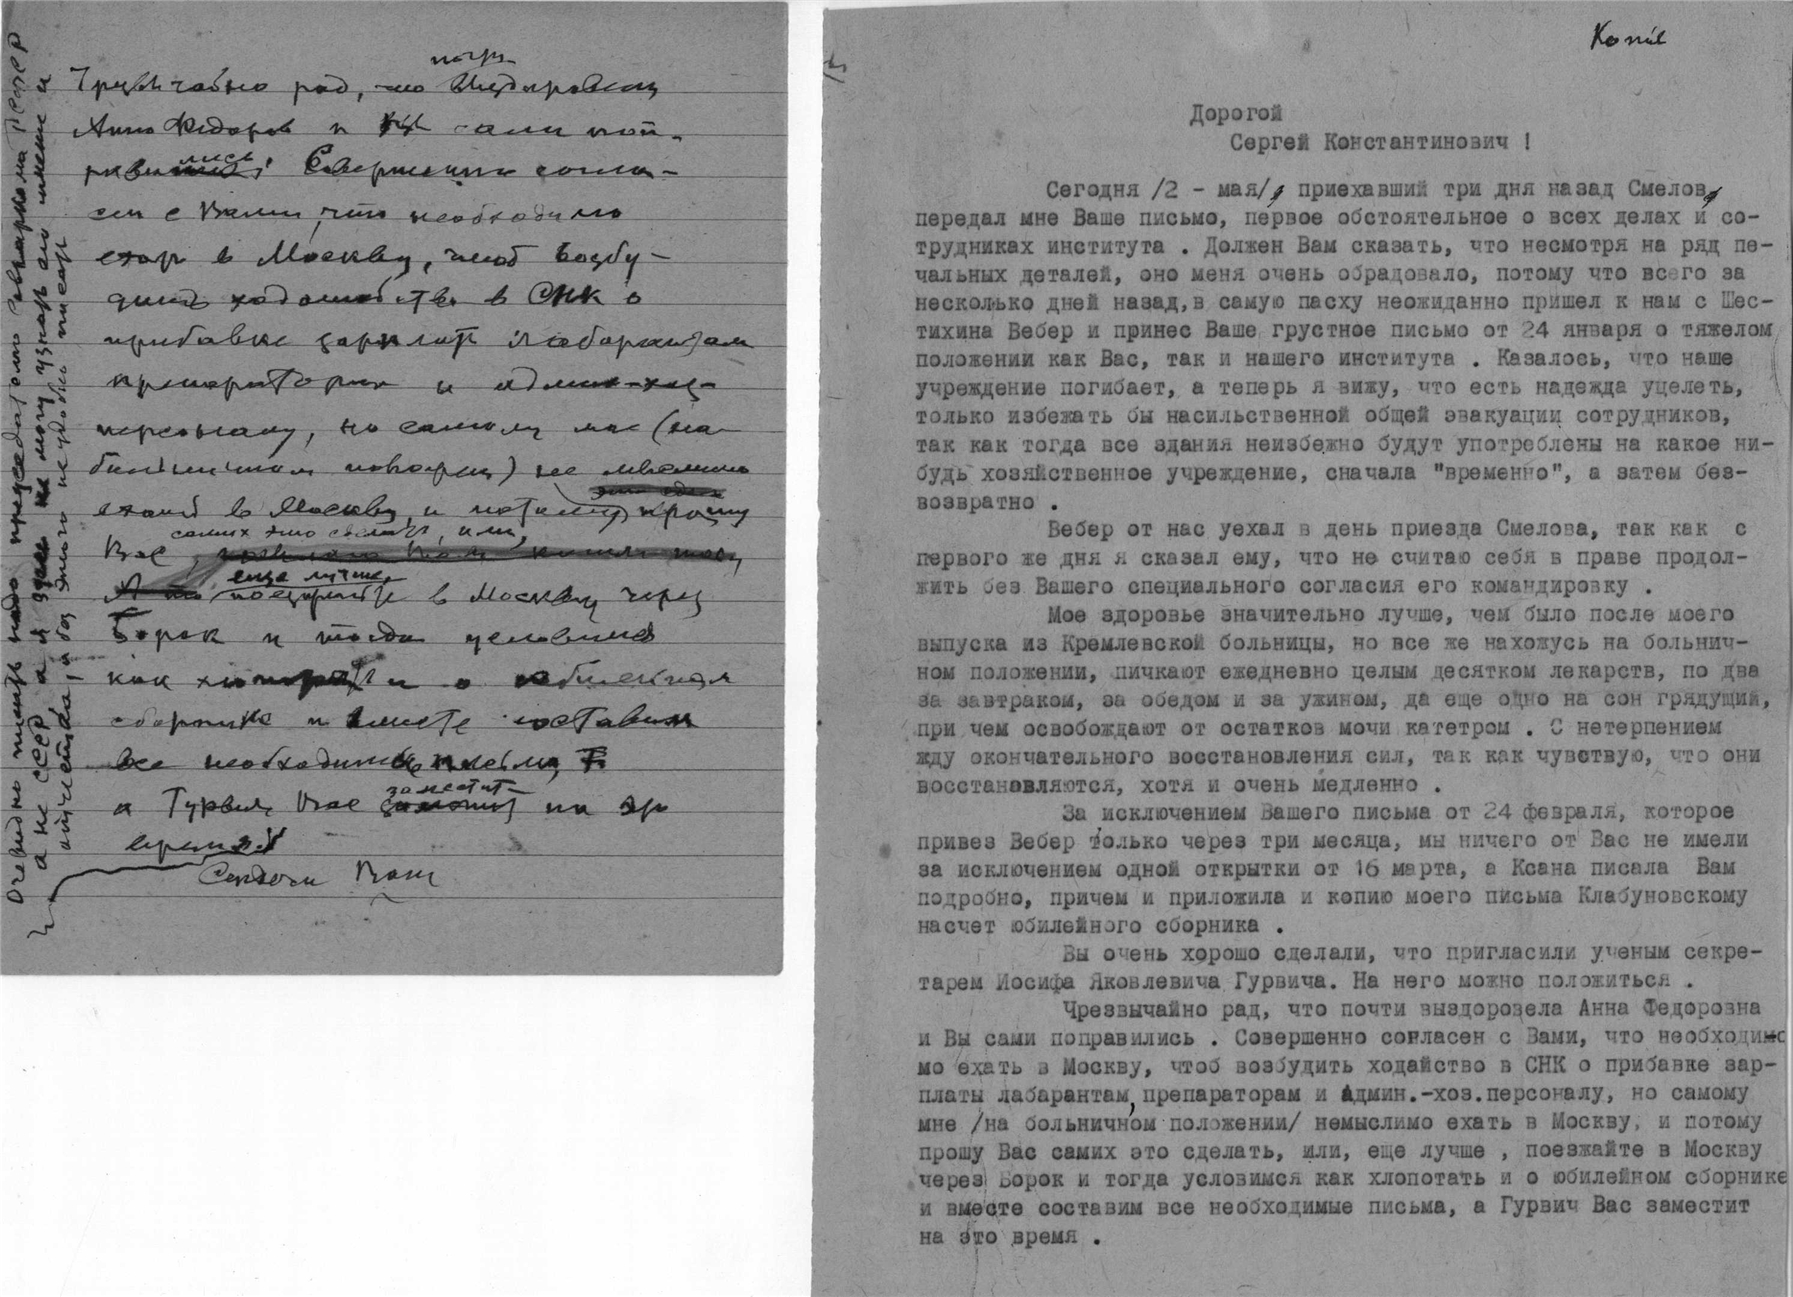 почти
Чрезвычайно рад, что выздоровела
Анна Федоров и сами поп-
равились. Совершенно согла-
сен с Вами, что необходимо
ехать в Москву, чтоб возбу-
дить ходатайство в СНК о
прибавке зарплат лаборантам
препараторам и админ-хоз-
персоналу, но самому мне (на
больничном полож) не мыслимо
ехать в Москву, и потому прошу
самих это сделать, или,
Вас
еще лучше,
поезжайте в Москву через
Борок и тогда условимся
как хлопотать и о юбилейном
сборнике и вместе составим
все необходимые письма,
а Гурвич Вас заместит на это
время.
Сердечно Ваш
Очевидно писать надо председателю Совнаркома РСФСР
а не СССР, а я здесь не могу узнать его имени и
отчества, а без этого неудобно писать
Копия
Дорогой
Сергей Константинович !
Сегодня /2 - мая/, приехавший три дня назад Смелов,
передал мне Ваше письмо, первое обстоятельное о всех делах и со-
трудниках института . Должен Вам сказать, что несмотря на ряд пе-
чальных деталей, оно меня очень обрадовало, потому что всего за
несколько дней назад, в самую пасху неожиданно пришел к нам с Шес-
тихина Вебер и принес Ваше грустное письмо от 24 января о тяжелом
положении как Вас, так и нашего института . Казалось, что наше
учреждение погибает, а теперь я вижу, что есть надежда уцелеть,
только избежать бы насильственной общей эвакуации сотрудников,
так как тогда все здания неизбежно будут употреблены на какое ни-
будь хозяйственное учреждение, сначала "временно", а затем без-
возвратно .
Вебер от нас уехал в день приезда Смелова, так как с
первого же дня я сказал ему, что не считаю себя в праве продол-
жить без Вашего специального согласия его командировку .
Мое здоровье значительно лучше, чем было после моего
выпуска из Кремлевской больницы, но все же нахожусь на больнич-
ном положении, пичкают ежедневно целым десятком лекарств, по два
за завтраком, за обедом и за ужином, да еще одно на сон грядущий,
при чем освобождают от остатков мочи катетром . С нетерпением
жду окончательного восстановления сил, так как чувствую, что они
восстановляются, хотя и очень медленно .
За исключением Вашего письма от 24 февраля, которое
привез Вебер только через три месяца, мы ничего от Вас не имели
за исключением одной открытки от 16 марта, а Ксана писала Вам
подробно, причем и приложила и копию моего письма Клабуновскому
насчет юбилейного сборника .
Вы очень хорошо сделали, что пригласили ученым секре-
тарем Иосифа Яковлевича Гурвича. На него можно положиться .
Чрезвычайно рад, что почти выздоровела Анна Федоровна
и Вы сами поправились . Совершенно согласен с Вами, что необходимо
мо ехать в Москву, чтоб возбудить ходайство в СНК о прибавке зар-
платы лабарантам, препараторам и Админ.-хоз.персоналу, но самому
мне /на больничном положении/ немыслимо ехать в Москву, и потому
прошу Вас самих это сделать, или, еще лучше , поезжайте в Москву
через Борок и тогда условимся как хлопотать и о юбилейном сборнике
и вместе составим все необходимые письма, а Гурвич Вас заместит
на это время .